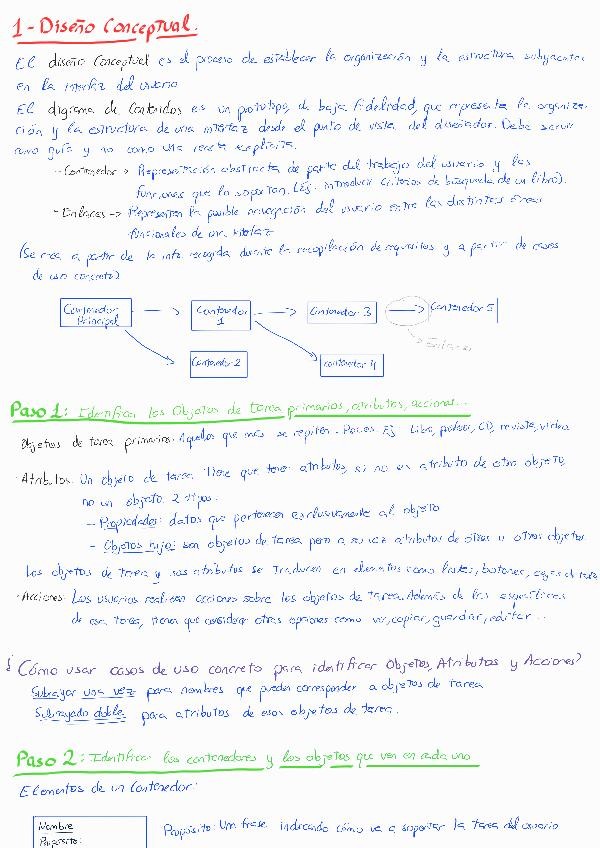 1-Diseño Conceptual.
El diseño Conceptual es el proceso de establecer la organización y la estructura subyacente
en la interfaz del usuario
El digrama de Contenidos es un prototipo, de baja fidelidad, que representa la organiza-
ción y la estructura de una interfaz desde el punto de vista del diseñador. Debe servir
como guía y no como una receta explícita.
- Contenedor → Representación abstracta de parte del trabajo del usuario y las
funciones que la soportan. (Ej: introducir criterios de búsqueda de un libro).
- Enlaces → Representan la posible navegación del usuario entre las distintas áreas
funcionales de una interfaz
(Se crea a partir de la info recogida durante la recopilación de requisitos y a partir de casos
de uso concreto)
Contenedor Principal
Contenedor 1
Contenedor 3
Contenedor 5
Enlaces
Contenedor 2
contenedor 4
Paso 1: Identificar los Objetos de tarea primarios, atributos, acciones...
Objetos de tarea primarios: Aquellos que más se repiten. Pocos. Ej Libro, película, CD, revista, video
· Atributos: Un objeto de tarea tiene que tener atributos, si no es atributo de otro objeto,
no un objeto. 2 tipos.
- Propiedades: datos que pertenecen exclusivamente al objeto
- Objetos hijos: son objetos de tarea pero a su vez atributos de otros u otros objetos.
Los objetos de tarea y sus atributos se traducen en elementos como listas, botones, cajas de texto
· Acciones: Los usuarios realizan acciones sobre los objetos de tarea. Además de las específicas
de esa tarea, tienen que considerar otras opciones como ver, copiar, guardar, editar...
¿Cómo usar casos de uso concreto para identificar Objetos, Atributos y Acciones?
Subrayar una vez para nombres que pueden corresponder a objetos de tarea
Subrayado doble para atributos de esos objetos de tarea.
Paso 2: Identificar los contenedores y los objetos que van en cada uno
Elementos de un Contenedor:
Nombre
Propósito:
Propósito: Una frase indicando cómo va a soportar la tarea del usuario